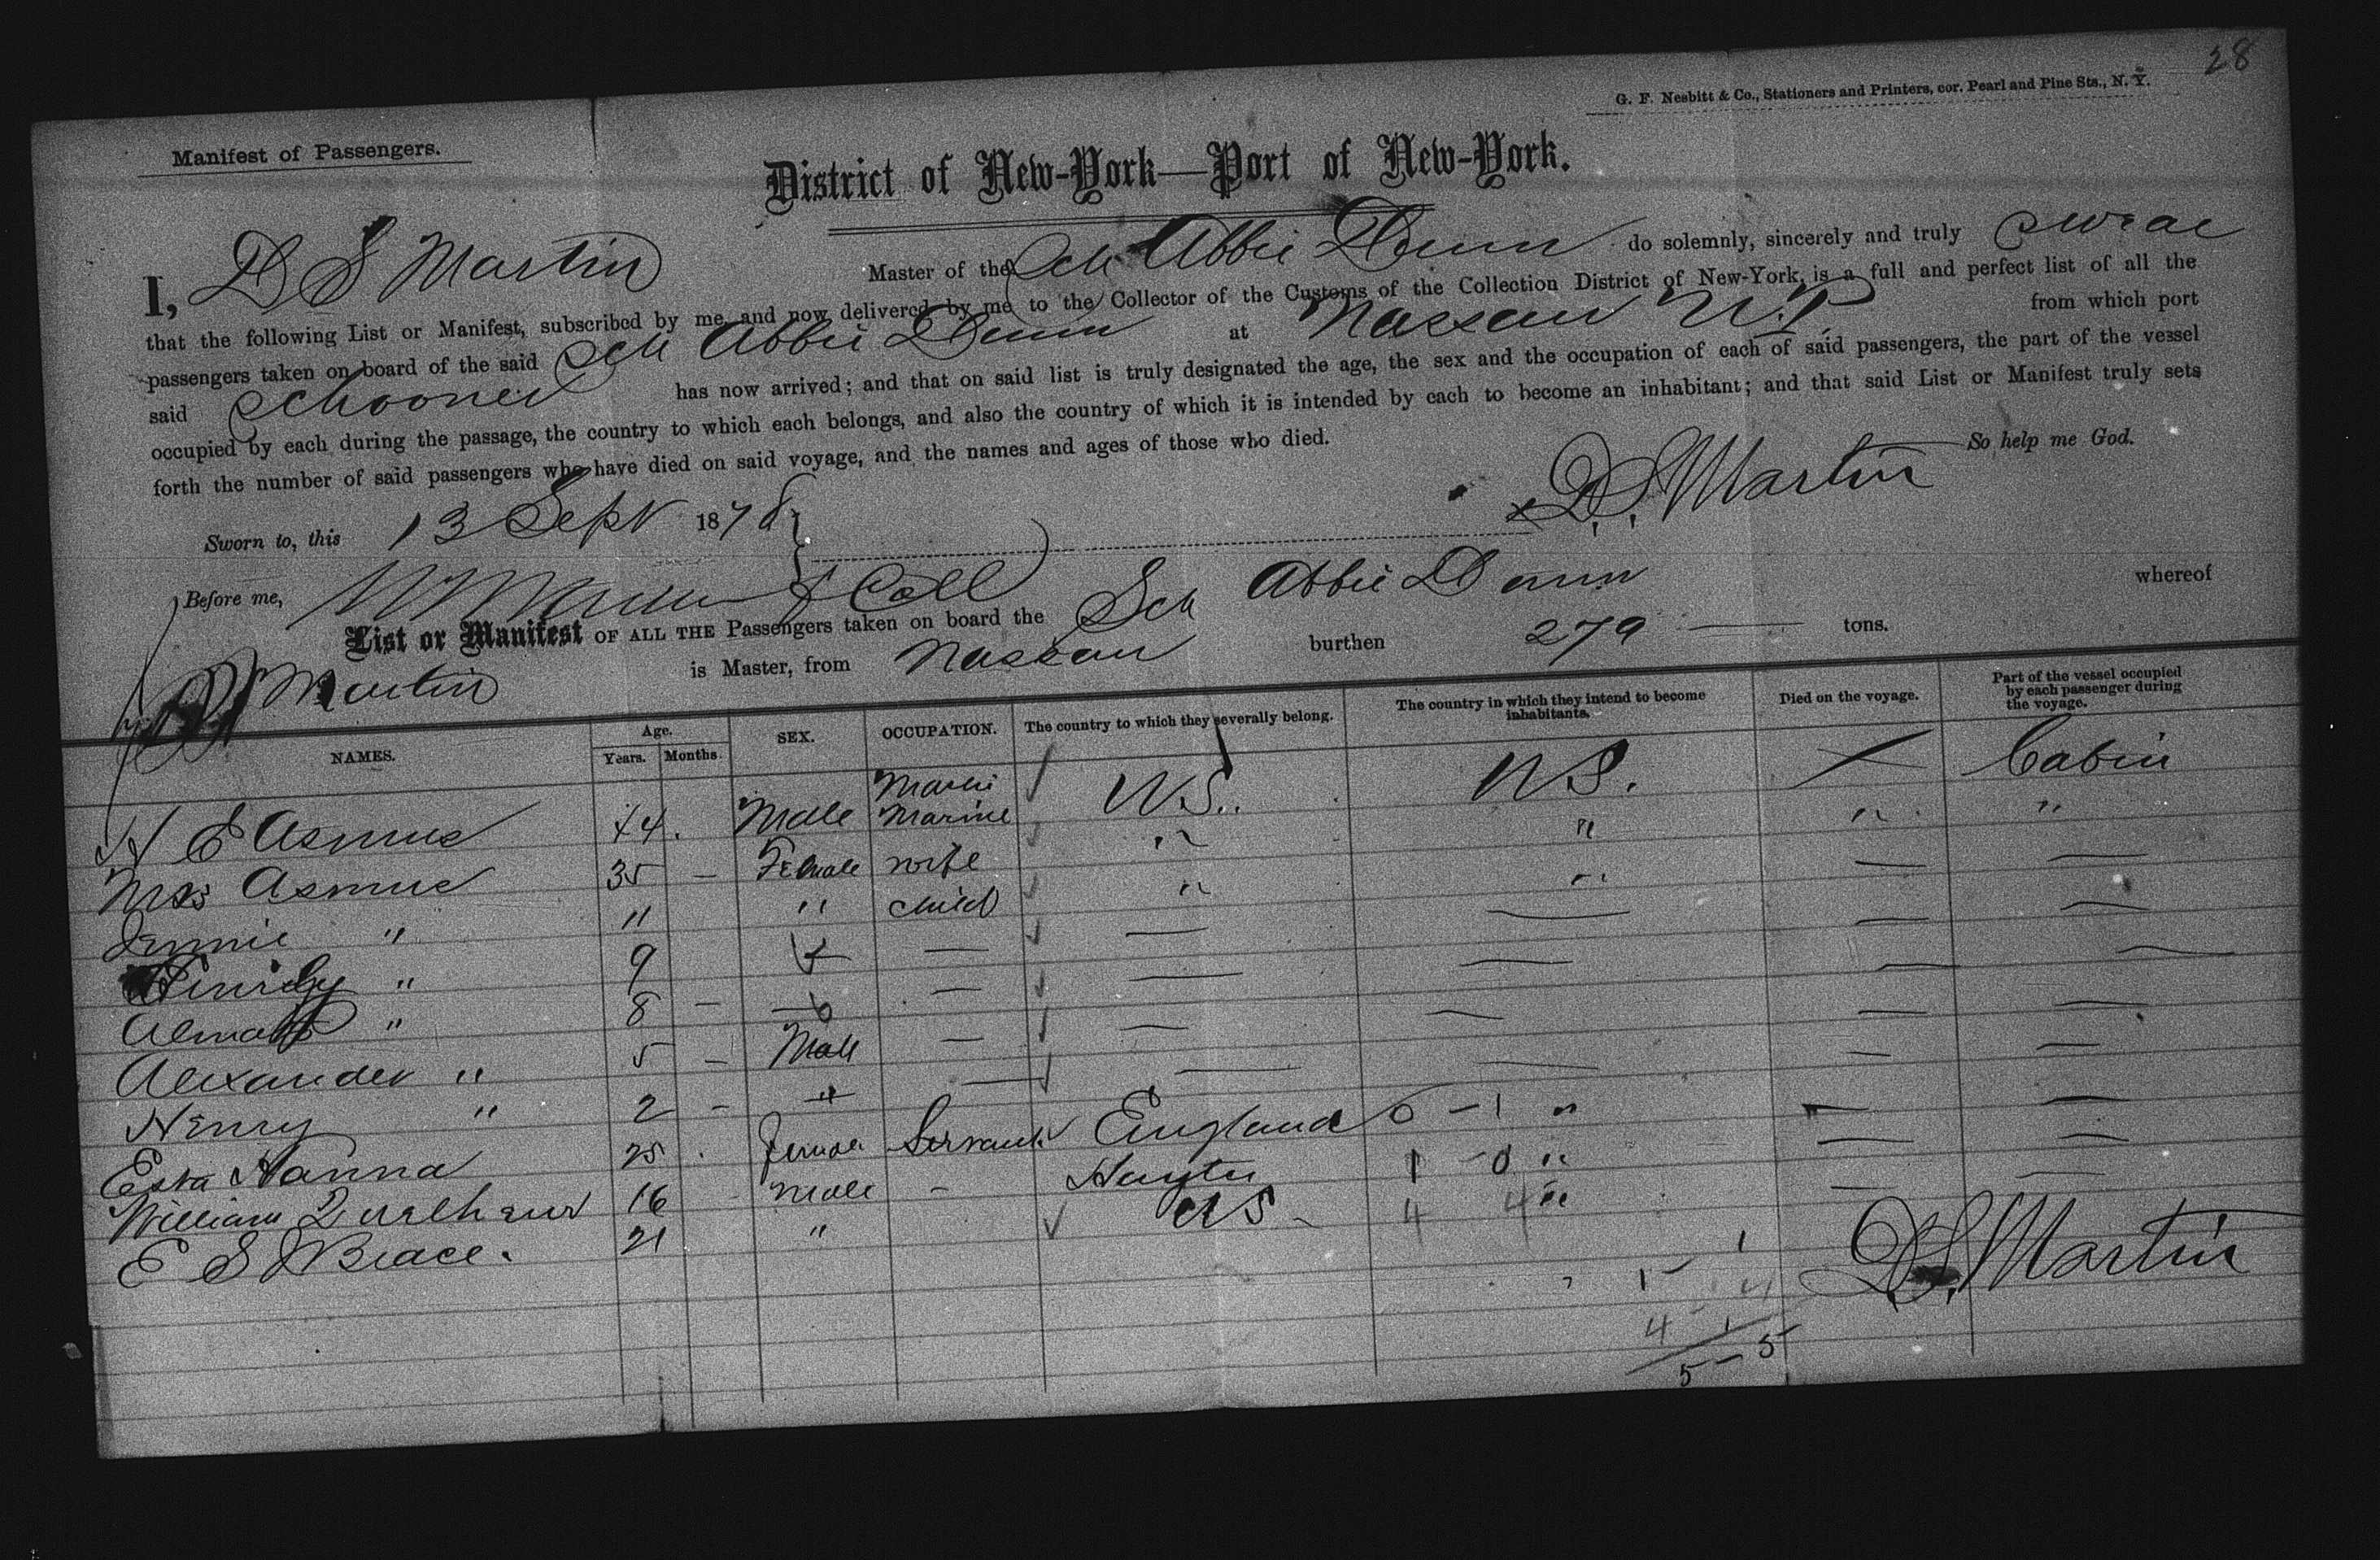 28
G. F. Nesbitt & Co., Stationers and Printers, cor. Pearl and Pine Sts., N. Y.
Manifest of Passengers.
District of New-York—Port of New-York.
I, D S Martin Master of the Sch Abbie Dunn do solemnly, sincerely and truly swear
that the following List or Manifest, subscribed by me, and now delivered by me to the Collector of the Customs of the Collection District of New-York, is a full and perfect list of all the
passengers taken on board of the said Sch Abbie Dunn at Nassau N.P. from which port
said Schooner has now arrived; and that on said list is truly designated the age, the sex and the occupation of each of said passengers, the part of the vessel
occupied by each during the passage, the country to which each belongs, and also the country of which it is intended by each to become an inhabitant; and that said List or Manifest truly sets
forth the number of said passengers who have died on said voyage, and the names and ages of those who died. So help me God.
D. S. Martin
Sworn to, this 13 Sept 1878
Before me, Coll
List or Manifest OF ALL THE Passengers taken on board the Sch Abbie Dunn whereof
D S Martin is Master, from Nassau burthen 279 tons.
NAMES. Age. Years. Months. SEX. OCCUPATION. The country to which they severally belong. The country in which they intend to become inhabitants. Died on the voyage. Part of the vessel occupied by each passenger during the voyage.
H E Asmus 44. Male Marine U S. U S. Cabin
Mrs Asmus 35 — Female wife " " " "
Jennie " 11 " child " "
" 9
" 8 —
Alexander " 5 — Male
Henry " 2 — "
Esta Hanna 25 Female Servant England 0 - 1 "
William 16 Male - Hayti 1 - 0 "
E S Brace. 21 " U S 4 4 "
1
1 - 4
4 - 1
5 - 5
D. S. Martin